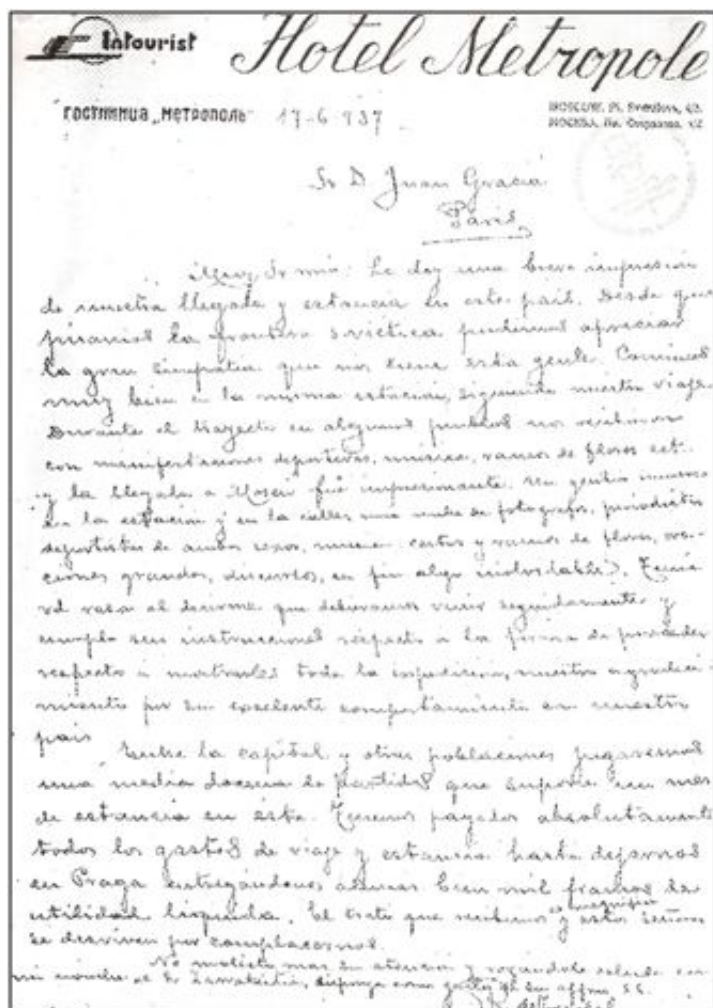 Intourist Hotel Metropole
ГОСТИНИЦА „МЕТРОПОЛЬ" 17-6-937
MOSCOW, Pl. Sverdlova,
МОСКВА, Пл. Свердлова,
Sr D. Juan Gracia
Paris
Muy Sr mio: Le doy una breve impresion
de nuestra llegada y estancia en este pais. Desde que
pisamos la frontera sovietica pudimos apreciar
la gran simpatia que nos tiene esta gente. Comimos
muy bien en la misma estacion, siguiendo nuestro viaje.
Durante el trayecto en algunos pueblos nos recibieron
con manifestaciones deportivas, musica, ramos de flores ect.
y la llegada a Moscu fué impresionante. Un gentio inmenso
en la estacion y en la calles una nube de fotografos, periodistas
deportistas de ambos sexos, musica cestos y ramos de flores, ova-
ciones grandes, discursos, en fin algo inolvidable. Tenia
vd razon al decirme que debieramos venir seguidamente y
cumplo sus instrucciones respecto a la forma de proceder
respecto a mostrarles toda la expedicion, nuestro agradeci-
miento por su excelente comportamiento en nuestro
pais
Entre la capital y otras poblaciones jugaremos
una media docena de partidos que supone un mes
de estancia en esta. Tenemos pagados absolutamente
todos los gastos de viaje y estancia hasta dejarnos
en Praga entregándonos ademas cien mil francos de
utilidad liquida. El trato que recibimos es magnifico y estos señores
se desviven por complacernos.
No molesto mas su atencion y rogandole salude en
mi nombre al Sr disponga como guste de su affmo S.S.